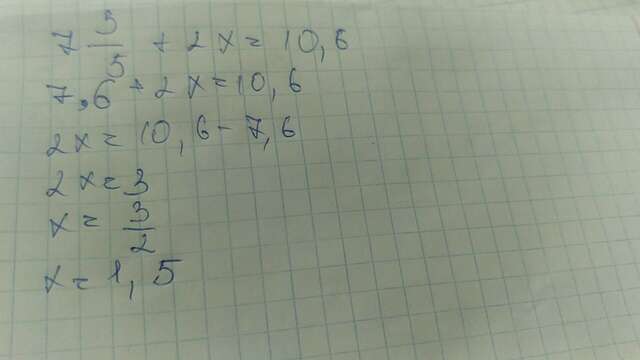 7 3/5 + 2x = 10,6
7,6 + 2x = 10,6
2x = 10,6 - 7,6
2x = 3
x = 3/2
x = 1,5